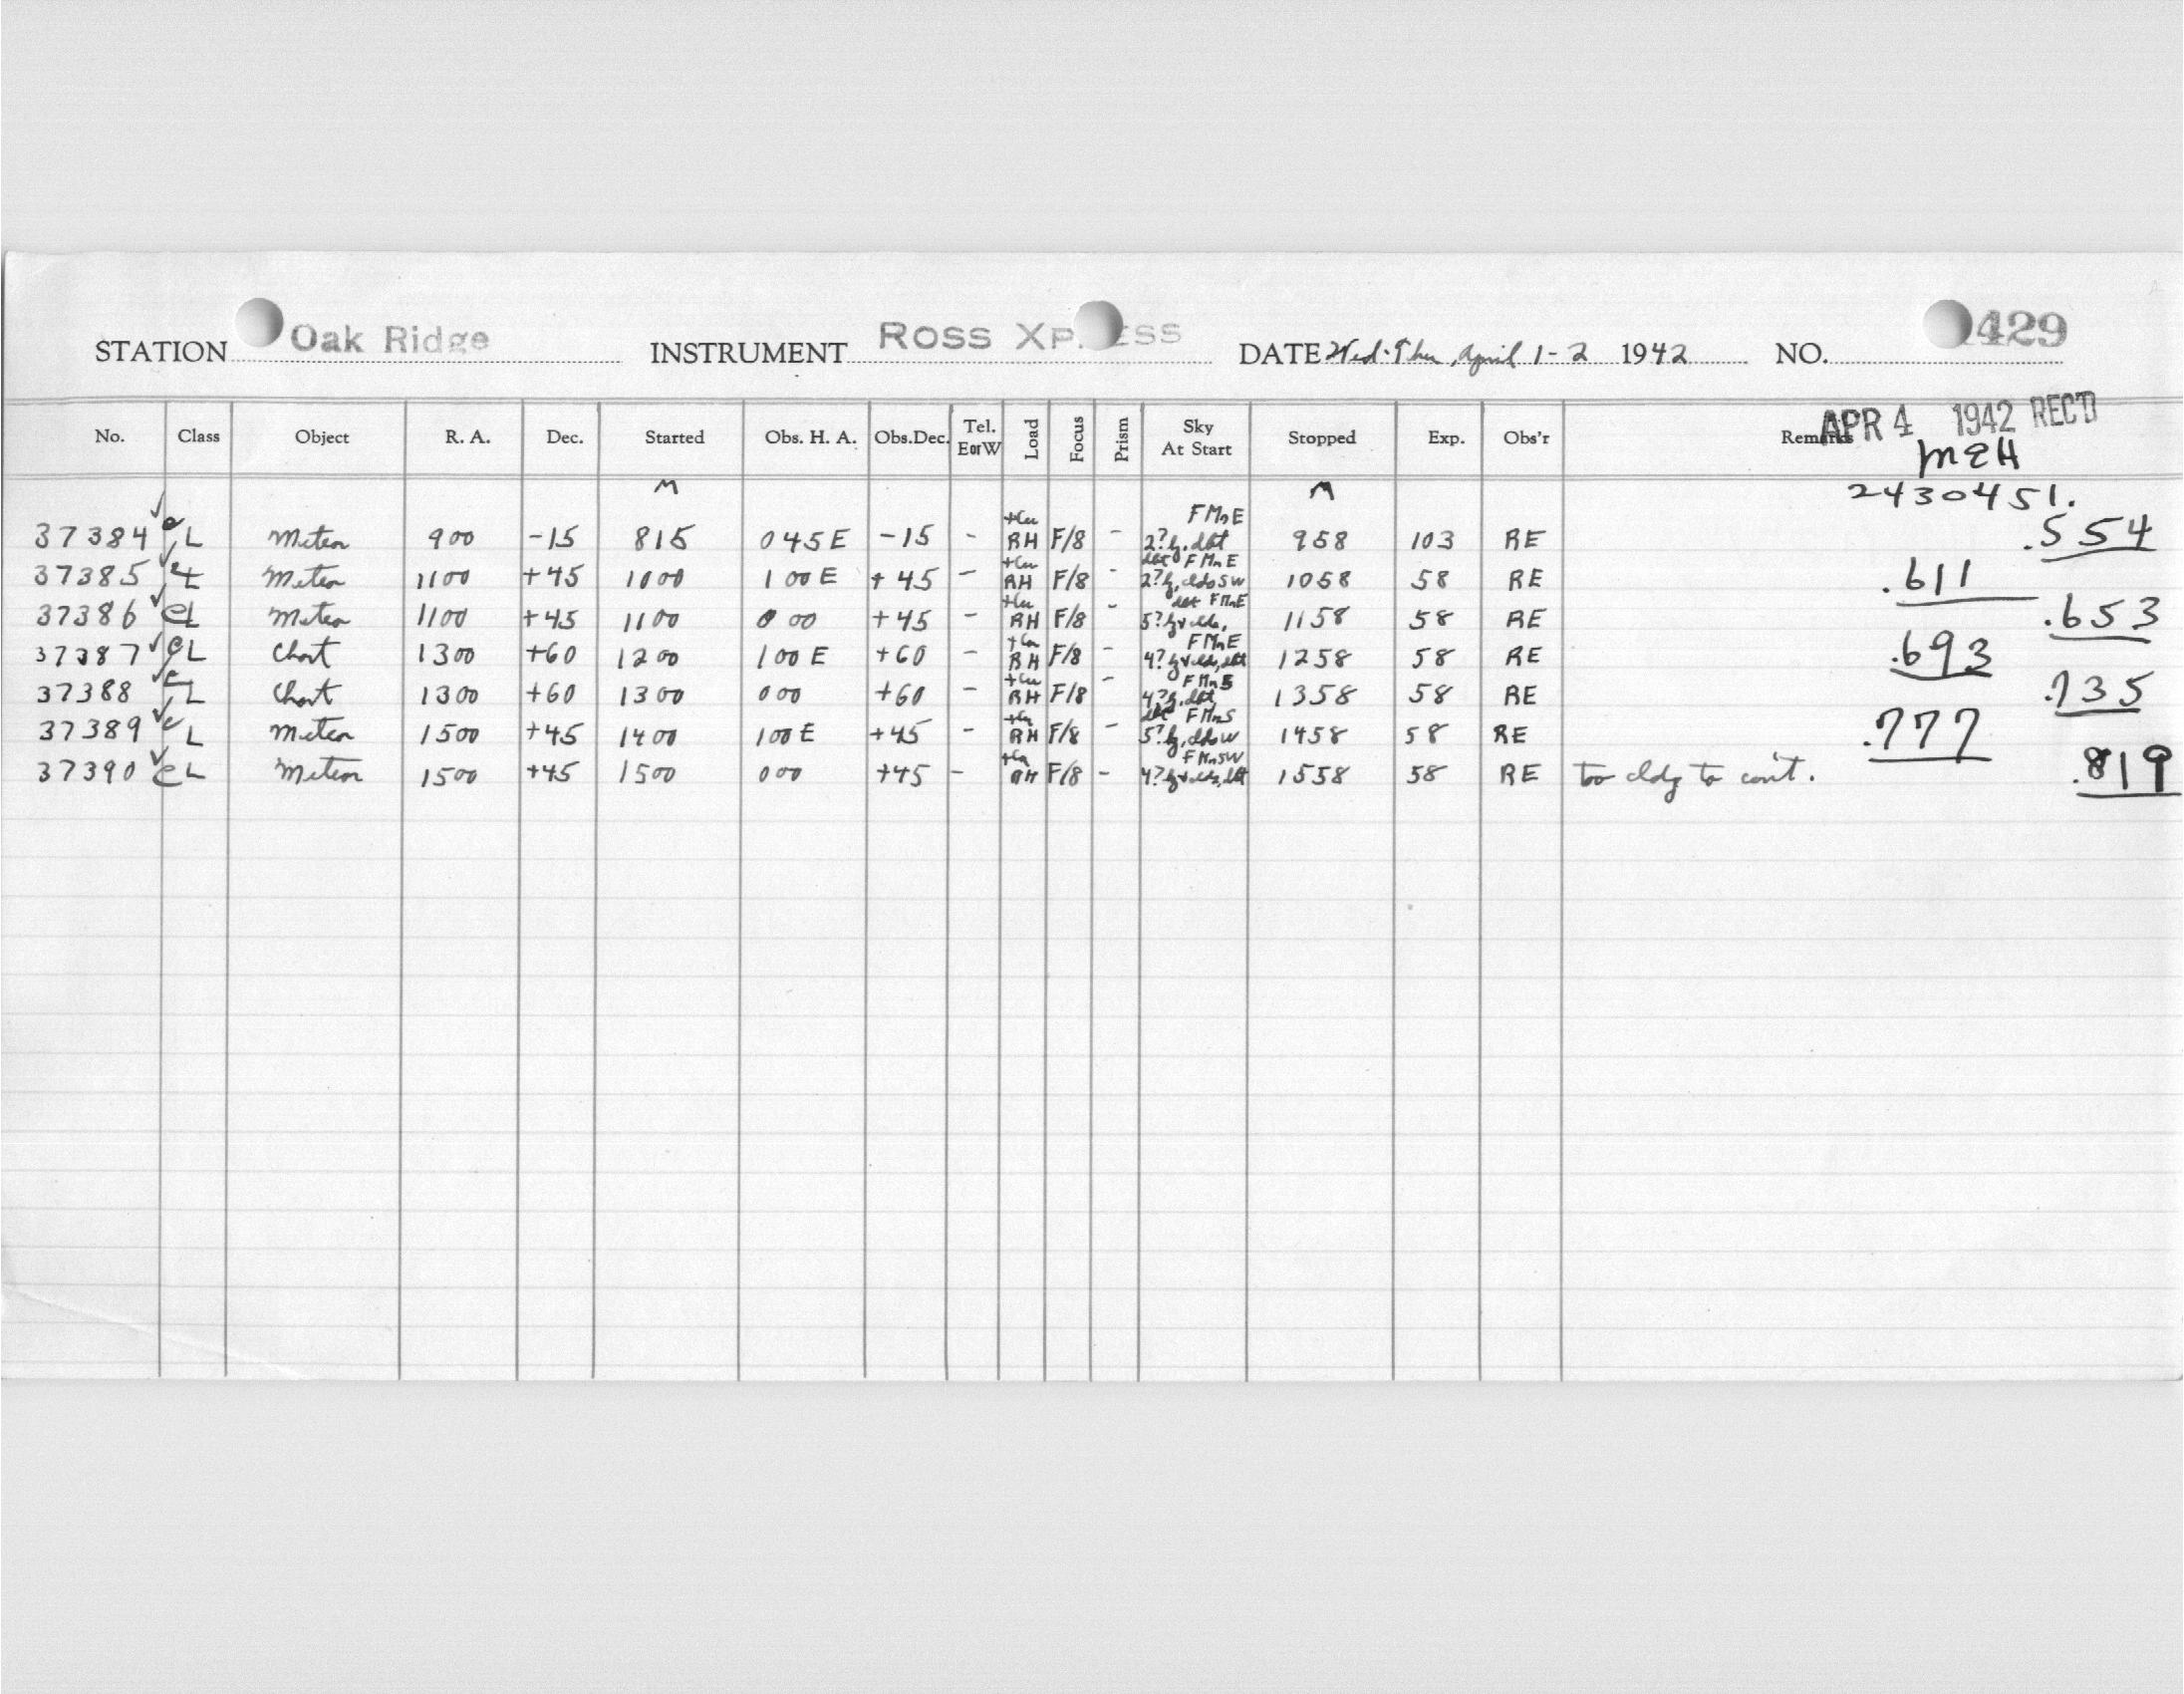 STATION Oak Ridge INSTRUMENT ROSS XP ESS DATE Wed.-Thu, April 1-2 1942 NO. 429
No. Class Object R. A. Dec. Started Obs. H. A. Obs. Dec. Tel. E or W Load Focus Prism Sky At Start Stopped Exp. Obs'r Remarks
APR 4 1942 REC'D
MEH
M M 2430451.
37384 ✓ e L Meteor 900 -15 815 045E -15 - +Cu RH F/8 - FMnE 2? hz, dbt 958 103 RE .554
37385 ✓ e L Meteor 1100 +45 1000 100E +45 - +Cu RH F/8 - dbt FMnE 2? hz, cldsSW 1058 58 RE .611
37386 ✓ eL Meteor 1100 +45 1100 000 +45 - +Cu RH F/8 - dbt FMnE 5? hz+clds, 1158 58 RE .653
37387 ✓ eL Chart 1300 +60 1200 100E +60 - +Cu RH F/8 - FMnE 4? hz+clds, dbt 1258 58 RE .693
37388 ✓ e L Chart 1300 +60 1300 000 +60 - +Cu RH F/8 - FMnS 4? hz, dbt 1358 58 RE .735
37389 ✓ e L Meteor 1500 +45 1400 100E +45 - +Cu RH F/8 - dbt FMnS 5? hz, cldsW 1458 58 RE .777
37390 ✓ eL Meteor 1500 +45 1500 000 +45 - +Cu RH F/8 - FMnSW 4? hz+clds, dbt 1558 58 RE too cldy to con't. .819